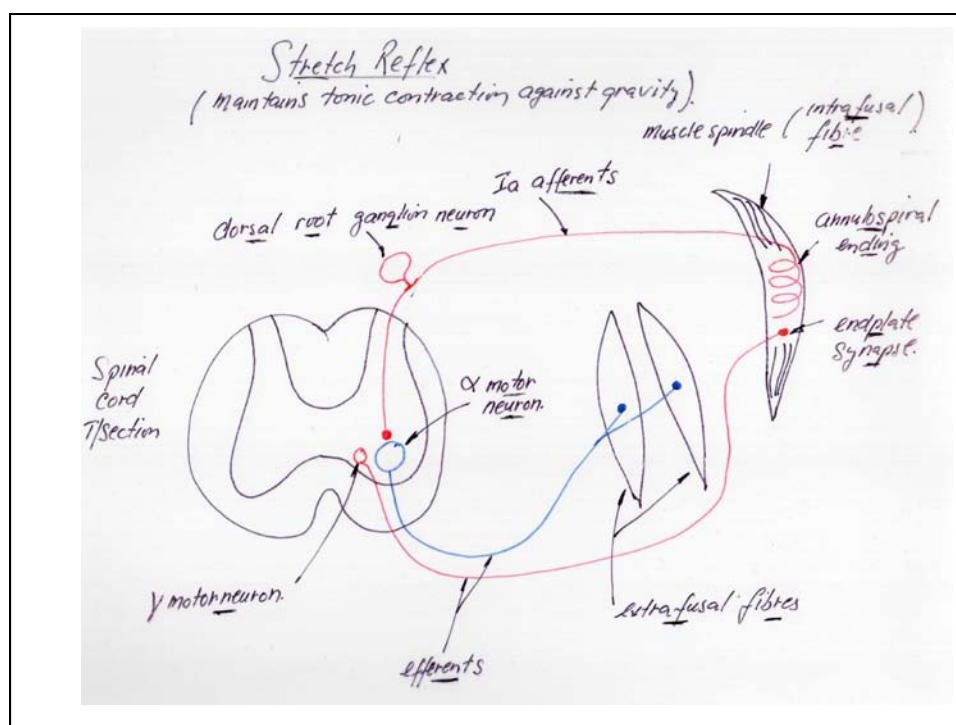 Stretch Reflex
(maintains tonic contraction against gravity).
muscle spindle (intrafusal
fibre)
Ia afferents
dorsal root ganglion neuron
annulospiral
ending
endplate
synapse.
Spinal
Cord
T/section
α motor
neuron.
γ motorneuron.
extrafusal fibres
efferents